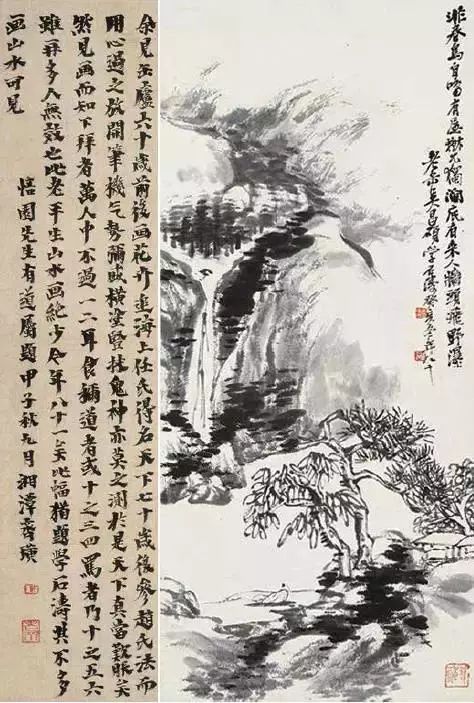 自啼有
吳昌碩學石濤癸亥年八十
余見缶廬六十歲前後畫花卉追海上任氏得名天下七十歲後參趙氏法而
用心過之放開筆機氣勢彌盛橫塗豎抹鬼神亦莫之測於是天下真當矣
然見画而知下拜者萬人中不過一二耳食稱道者或十之三四罵者乃十之五六
雖拜多人無也此老平生山水画絶少今年八十一矣此幅猶題學石濤其不多
画山水可見
悟園先生有道屬題甲子秋九月湘潭齊璜